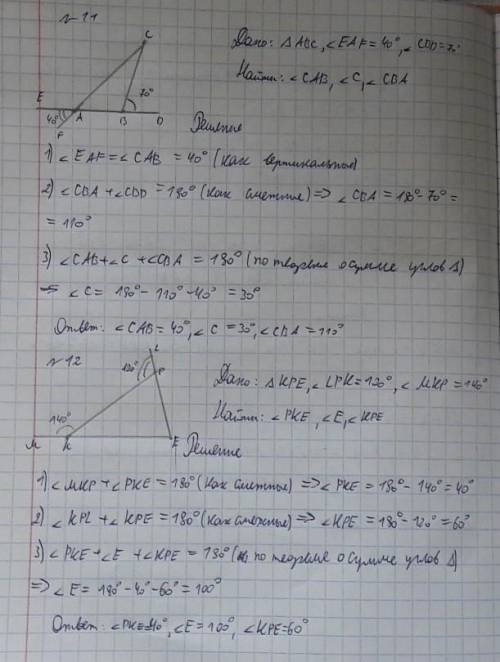 № 11
C
E
A
B
D
F
40°
70°
Дано: △ ABC, ∠EAF = 40°, ∠ CBD = 70°
Найти: ∠ CAB, ∠ C, ∠ CBA
Решение
1) ∠ EAF = ∠ CAB = 40° (как вертикальные)
2) ∠ CBA + ∠ CBD = 180° (как смежные) => ∠ CBA = 180° - 70° =
= 110°
3) ∠ CAB + ∠ C + ∠ CBA = 180° (по теореме о сумме углов △)
=> ∠ C = 180° - 110° - 40° = 30°
Ответ: ∠ CAB = 40°, ∠ C = 30°, ∠ CBA = 110°
№ 12
L
120°
P
140°
M
K
E
Дано: △ KPE, ∠ LPK = 120°, ∠ MKP = 140°
Найти: ∠ PKE, ∠ E, ∠ KPE
Решение
1) ∠ MKP + ∠ PKE = 180° (как смежные) => ∠ PKE = 180° - 140° = 40°
2) ∠ KPL + ∠ KPE = 180° (как смежные) => ∠ KPE = 180° - 120° = 60°
3) ∠ PKE + ∠ E + ∠ KPE = 180° (по теореме о сумме углов △)
=> ∠ E = 180° - 40° - 60° = 100°
Ответ: ∠ PKE = 40°, ∠ E = 100°, ∠ KPE = 60°